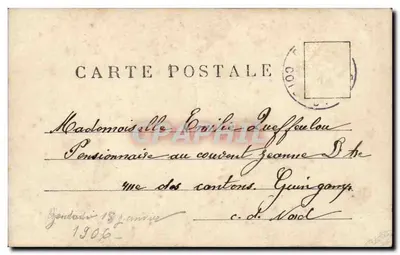 CARTE POSTALE
Mademoiselle Emilie Queffeulou
Pensionnaire au couvent Jeanne D'Arc
rue des cantons. Guingamp
C. d. Nord
18 janvier
1906